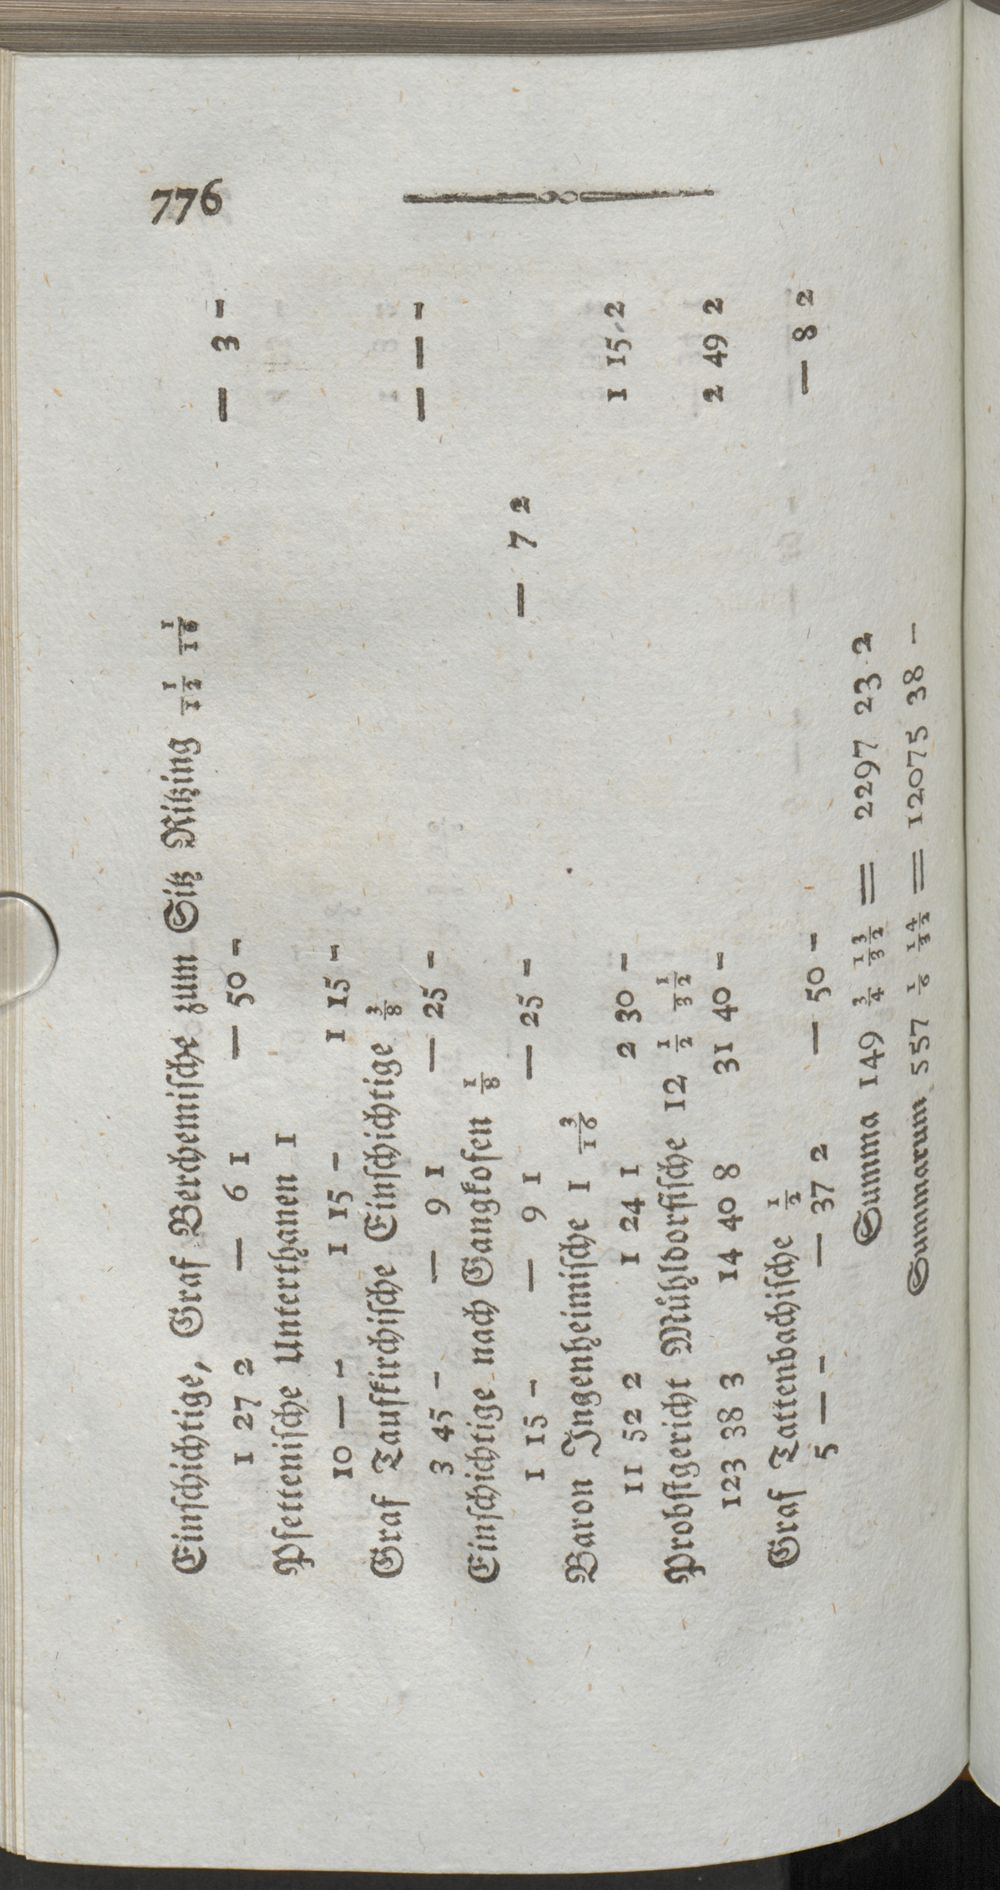 776
Einſchichtige, Graf Berchemiſche zum Sitz Ritzing 1/12 1/16
1 27 2 — 6 1 — 50 - — 3 -
Pfetteniſche Unterthanen 1
10 — - 1 15 - 1 15 -
Graf Taufkirchiſche Einſchichtige 3/8
3 45 - — 9 1 — 25 - — — -
Einſchichtige nach Gangkofen 1/8
1 15 - — 9 1 — 25 - — 7 2
Baron Ingenheimiſche 1 3/16
11 52 2 1 24 1 2 30 - 1 15 2
Probſtgericht Mühldorfiſche 12 1/2 1/32
123 38 3 14 40 8 31 40 - 2 49 2
Graf Tattenbachiſche 1/2
5 — - — 37 2 — 50 - — 8 2
Summa 149 3/4 13/32 = 2297 23 2
Summarum 557 1/6 14/32 = 12075 38 -